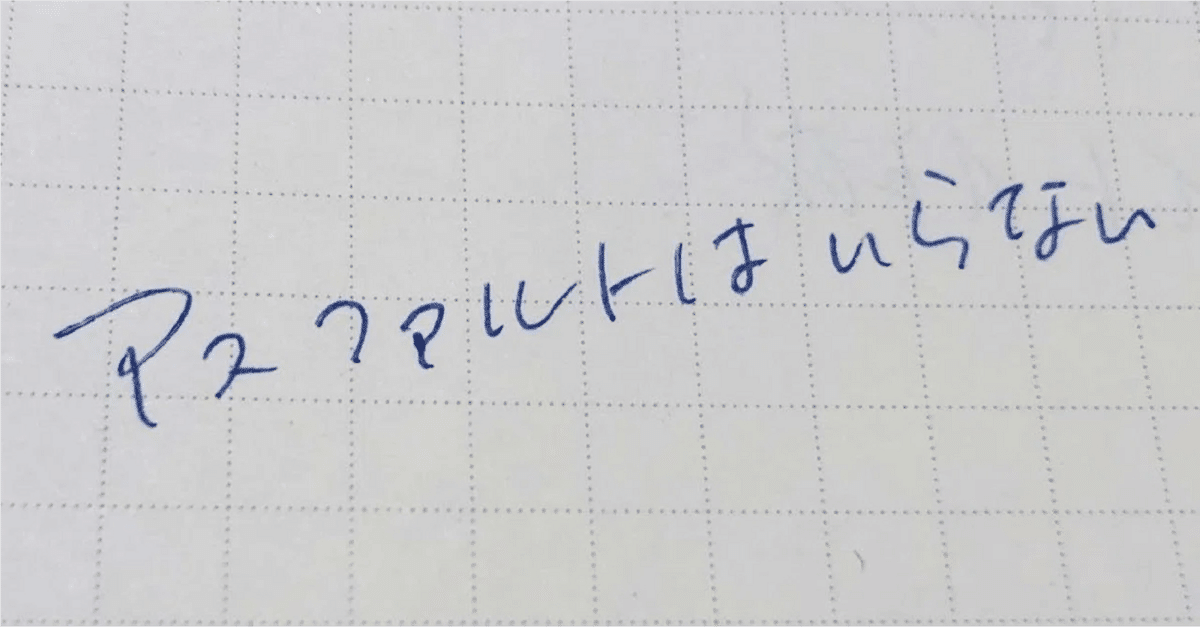 アスファルトはいらない